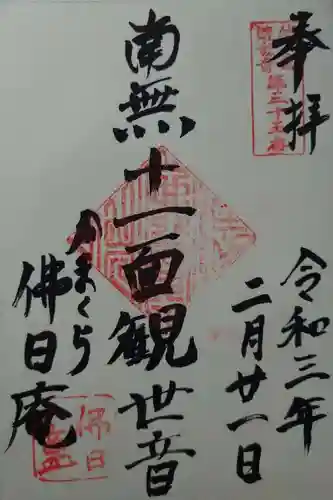 奉拝
令和三年
二月廿一日
南無十一面観世音
かまくら
佛日庵
佛日